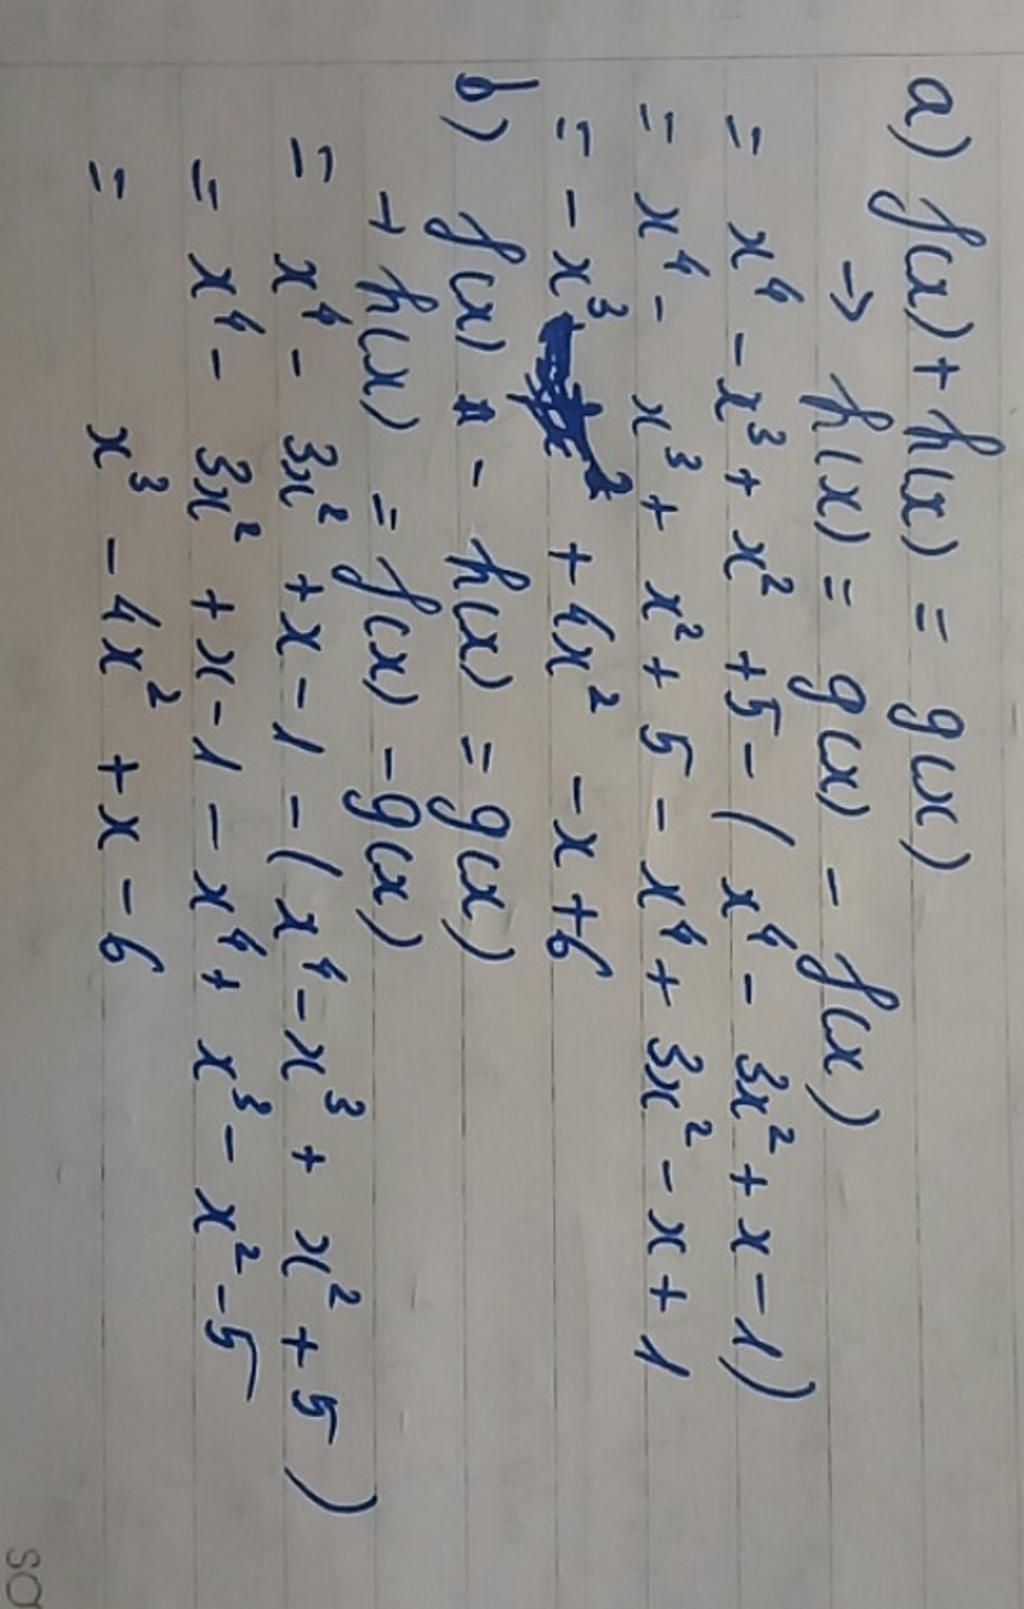 a) f(x) + h(x) = g(x)
→ h(x) = g(x) - f(x)
= x⁴ - x³ + x² + 5 - (x⁴ - 3x² + x - 1)
= x⁴ - x³ + x² + 5 - x⁴ + 3x² - x + 1
= - x³ + 4x² - x + 6
b) f(x) - h(x) = g(x)
→ h(x) = f(x) - g(x)
= x⁴ - 3x² + x - 1 - (x⁴ - x³ + x² + 5)
= x⁴ - 3x² + x - 1 - x⁴ + x³ - x² - 5
= x³ - 4x² + x - 6